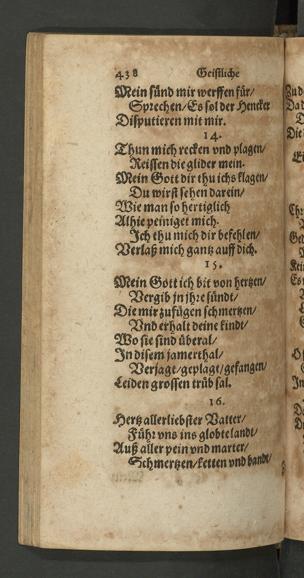 438 Geistliche
Mein sünd mir werffen für/
Sprechen/ Es sol der Hencker
Disputieren mit mir.
14.
Thun mich recken vnd plagen/
Reissen die glider mein.
Mein Gott dir thu ichs klagen/
Du wirst sehen darein/
Wie man so hertiglich
Alhie peiniget mich.
Ich thu mich dir befehlen/
Verlaß mich gantz auff dich.
15.
Mein Gott ich bit von hertzen/
Vergib jn jhre sündt/
Die mir zufügen schmertzen/
Vnd erhalt deine kindt/
Wo sie sind überal/
In disem jamerthal/
Verjagt/geplagt/gefangen/
Leiden grossen trübsal.
16.
Hertz allerliebster Vatter/
Führ vns ins globte landt/
Auß aller pein vnd marter/
Schmertzen/ketten vnd bandt/